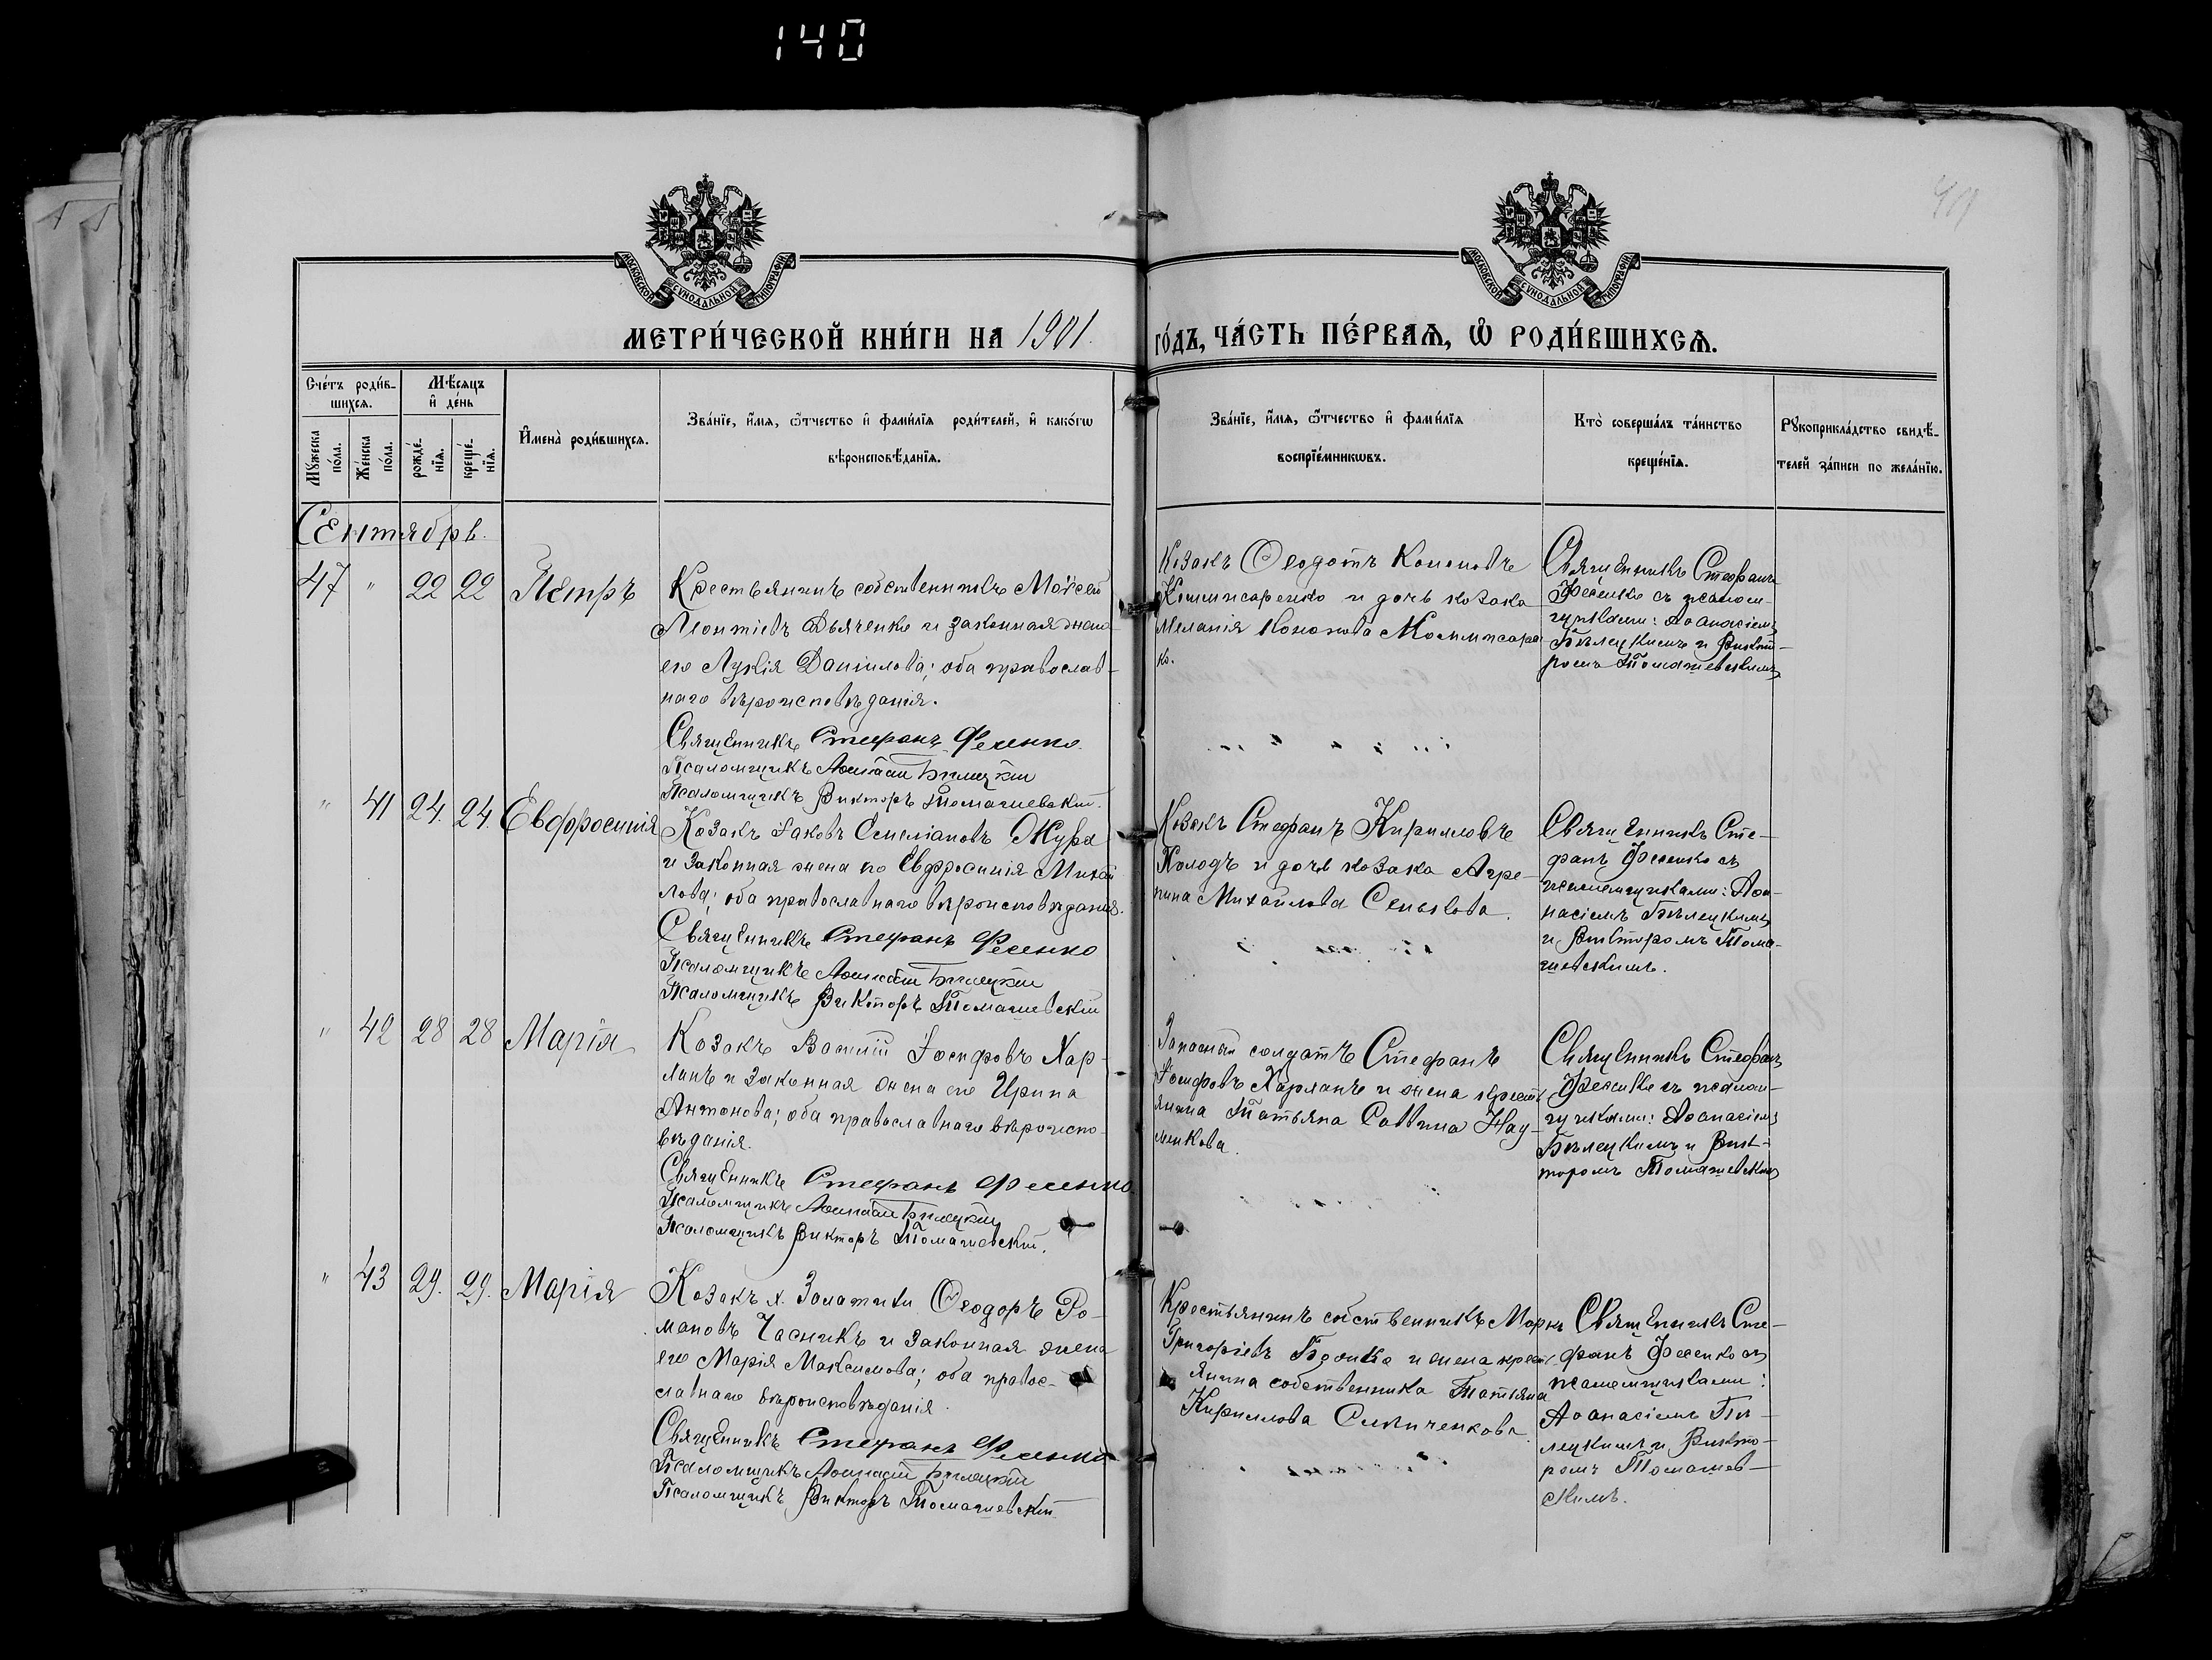 140
МОСКОВСКОЙ СѴНОДАЛЬНОЙ ТИПОГРАФІИ
МОСКОВСКОЙ СѴНОДАЛЬНОЙ ТИПОГРАФІИ
МЕТРИ́ЧЕСКОЙ КНИ́ГИ НА 1901 ГО́ДЪ, ЧА́СТЬ ПЕ́РВАѦ, Ѡ҆ РОДИ́ВШИХСѦ.
Сче́тъ роди́в-
шихсѧ.
Мѣ́сѧцъ
и҆ де́нь
Мꙋжеска
по́ла.
Же́нска
по́ла.
рожде́-
нїѧ.
креще́-
нїѧ.
И҆мена̀ роди́вшихсѧ.
Зва́нїе, и҆́мѧ, ѻ҆́тчество и҆ фами́лїѧ роди́телей, и҆ како́гѡ
вѣроисповѣ́данїѧ.
Зва́нїе, и҆́мѧ, ѻ҆́тчество и҆ фами́лїѧ
воспрїе́мникѡвъ.
Кто̀ соверша́лъ та́инство
креще́нїѧ.
Рꙋкоприкла́дство свидѣ́-
телей за́писи по жела́нїю.
Сентябрь.
47 " 22 22 Петръ
Крестьянинъ собственникъ Моѵсей
Леонтіевъ Дьяченко и законная жена
его Лукія Даніилова; оба православ-
наго вѣроисповѣданія.
Священникъ Стефанъ Фесенко
Псаломщикъ Аѳанасій Бѣлецкій
Псаломщикъ Викторъ Томашевскій.
Козакъ Ѳеодотъ Кононовъ
Коммисаренко и дочь козака
Меланія Кононова Коммисаре
Священникъ Стефанъ
Фесенко съ псалом-
щиками: Аѳанасіемъ
Бѣлецкимъ и Викто-
ромъ Томашевскимъ
" 41 24. 24. Евфросинія
Козакъ Іаковъ Емеліановъ Жура
и законная жена его Евфросинія Михай
лова; оба православнаго вѣроисповѣданія.
Священникъ Стефанъ Фесенко
Псаломщикъ Аѳанасій Бѣлецкій
Псаломщикъ Викторъ Томашевскій
Козакъ Стефанъ Кирилловъ
Колодъ и дочь козака Агре-
пина Михайлова Сенькова.
Священникъ Сте-
фанъ Фесенко съ
псаломщиками: Аѳа-
насіемъ Бѣлецкимъ
и Викторомъ Тома-
шевскимъ.
" 42 28 28 Марія
Козакъ Василій Іосифовъ Хар-
ланъ и законная жена его Ирина
Антонова; оба православнаго вѣроиспо-
вѣданія.
Священникъ Стефанъ Фесенко
Псаломщикъ Аѳанасій Бѣлецкій
Псаломщикъ Викторъ Томашевскій.
Запасный солдатъ Стефанъ
Іосифовъ Харланъ и жена крест
янина Татьяна Саввина Нау-
менкова.
Священникъ Стефанъ
Фесенко съ псалом-
щиками: Аѳанасіемъ
Бѣлецкимъ и Вик-
торомъ Томашевским
" 43 29. 29. Марія
Козакъ м. Золатиби Ѳеодоръ Ро-
мановъ Часникъ и законная жена
его Марія Максимова; оба правос-
лавнаго вѣроисповѣданія.
Священникъ Стефанъ Фесенко
Псаломщикъ Аѳанасій Бѣлецкій
Псаломщикъ Викторъ Томашевскій
Крестьянинъ собственникъ Маркъ
Григоріевъ и жена крест
янина собственника Татіяна
Кириллова
Священникъ Сте-
фанъ Фесенко съ
псаломщиками:
Аѳанасіемъ Бѣ-
лецкимъ и Викто-
ромъ Томашев-
скимъ.